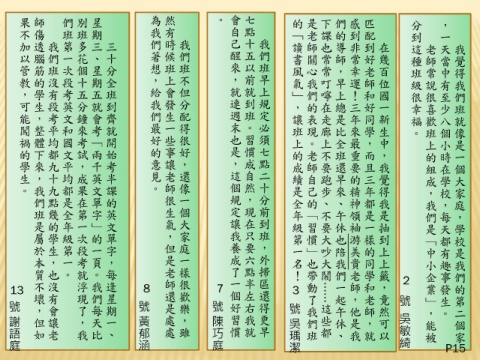 我覺得我們班就像是一個大家庭，學校是我們的第二個家
，一天當中有至少八個小時在學校，每天都有趣事發生。
老師常說很喜歡班上的組成，我們是「中小企業」，能被
分到這種班級很幸福。
2 號 吳敏綺
在幾百位國一新生中，我覺得我是抽到上上籤，竟然可以
匹配到好老師和好同學，而且三年都是一樣的同學和老師，就
感到非常幸運！三年來最重要的精神領袖游美貴老師，他是我
們的導師，早上總是比全班還早來、午休也陪我們一起午休、
下課也常常叮嚀在走廊上不要跑步、不要大吵大鬧……這些都
是老師關心我們的表現。老師自己的「習慣」也帶動了我們班
的「讀書風氣」，讓班上的成績是全年級第一名！
3 號 吳瑀潔
我們班早上規定必須七點二十分前到班，外掃區還得更早
七點十五以前就到班。習慣成自然，現在只要六點半左右我就
會自己醒來，就連週末也是，這個規定讓我養成了一個好習慣
。
7 號 陳巧庭
我們班不但分配得很好，還像一個大家庭一樣很歡樂，雖
然有時候班上會發生一些事讓老師很生氣，但是老師還是處處
為我們著想，給我們最好的意見。
8 號 黃郁涵
三十分全班到齊就開始考半課的英文單字，每逢星期一、
星期三、星期五就會考「兩千英文單字」的一頁。我們每天比
別班多花個十五分鐘來考試，成果在第一次段考就浮現了，我
們班第一次段考英文和國文平均都是全年級第一。
我們班沒有段考平均都九十九點幾的學生，也沒有會讓老
師傷透腦筋的學生，整體下來，我們班是屬於本質不壞，但如
果不加以管教，可能闖禍的學生。
13 號 謝語庭
P15